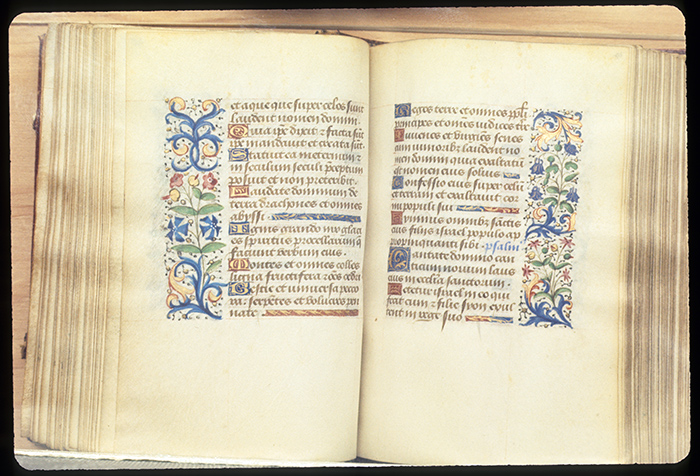 et aque que super celos sunt
laudent nomen domini.
Quia ipe dixit ⁊ facta sūt
ipse mandauit et creata sūt.
Statuit ea in eternum ⁊
in seculum seculi preceptum
posuit et non preteribit.
Laudate dominum de
terra drachones et omnes
abyssi.
Ignis grando nix glacies
spiritus procellarum que
faciunt verbum eius.
Montes et omnes colles
ligna fructifera ⁊ oēs cedri
Bestie et uniuersa peco
ra: serpentes et volucres pen
nate.
Reges terre et omnes ppli
principes et omnes iudices terre
Juuenes et virgines senes
cum iunioribꝫ laudent no
men domini quia exaltatū
est nomen eius solius
Confessio eius super celū
et terram et exaltauit cor
nu populi sui
Hymnus omnibꝫ sāctis
eius filijs israel populo ap
propinquanti sibi. psalm̄
Cantate domino can
ticum nouum laus
eius in ecclīa sanctorum.
Letetur israel in eo qui
fecit eum ⁊ filie syon exul
tent in rege suo